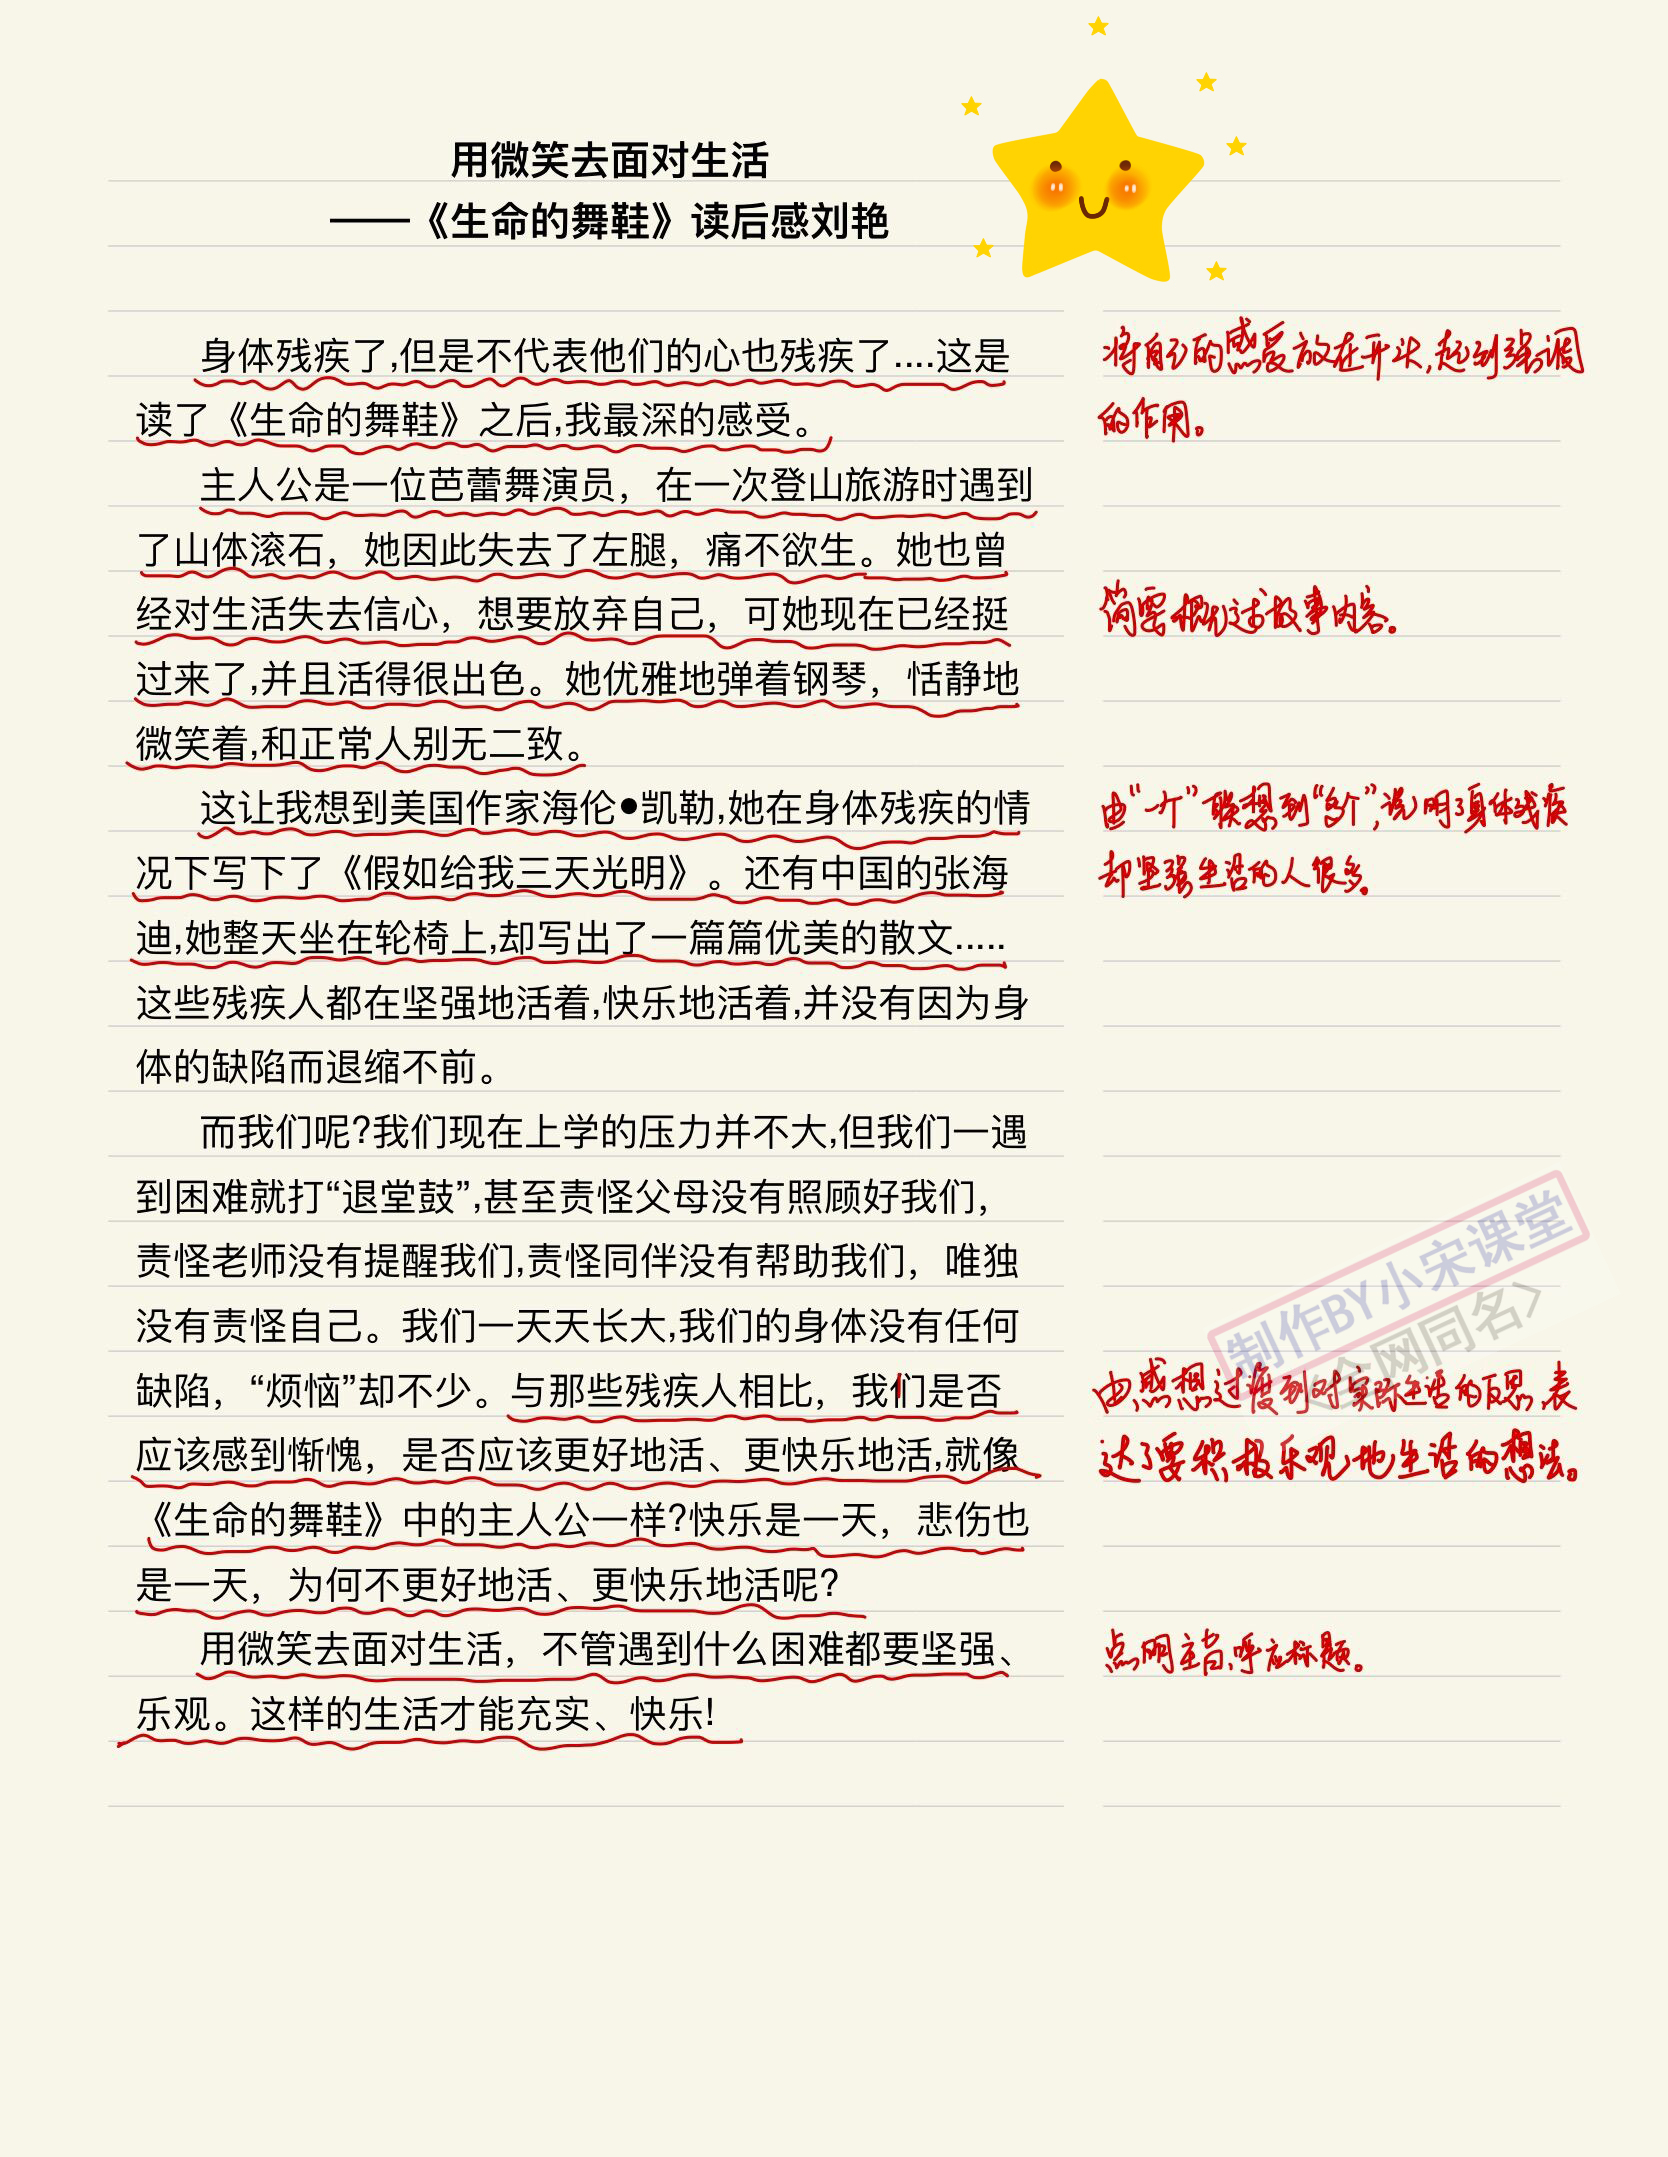 用微笑去面对生活
——《生命的舞鞋》读后感刘艳
身体残疾了,但是不代表他们的心也残疾了....这是
读了《生命的舞鞋》之后,我最深的感受。
将自己的感受放在开头,起到强调
的作用。
主人公是一位芭蕾舞演员，在一次登山旅游时遇到
了山体滚石，她因此失去了左腿，痛不欲生。她也曾
经对生活失去信心，想要放弃自己，可她现在已经挺
过来了,并且活得很出色。她优雅地弹着钢琴，恬静地
微笑着,和正常人别无二致。
简要概述故事内容。
这让我想到美国作家海伦●凯勒,她在身体残疾的情
况下写下了《假如给我三天光明》。还有中国的张海
迪,她整天坐在轮椅上,却写出了一篇篇优美的散文.....
这些残疾人都在坚强地活着,快乐地活着,并没有因为身
体的缺陷而退缩不前。
由“一个”联想到“多个”,说明了身体残疾
却坚强生活的人很多。
而我们呢?我们现在上学的压力并不大,但我们一遇
到困难就打“退堂鼓”,甚至责怪父母没有照顾好我们，
责怪老师没有提醒我们,责怪同伴没有帮助我们，唯独
没有责怪自己。我们一天天长大,我们的身体没有任何
缺陷，“烦恼”却不少。与那些残疾人相比，我们是否
应该感到惭愧，是否应该更好地活、更快乐地活,就像
《生命的舞鞋》中的主人公一样?快乐是一天，悲伤也
是一天，为何不更好地活、更快乐地活呢?
由感想过渡到对实际生活的反思,表
达了要积极乐观地生活的想法。
用微笑去面对生活，不管遇到什么困难都要坚强、
乐观。这样的生活才能充实、快乐!
点明主旨,呼应标题。
制作BY小宋课堂
<全网同名>